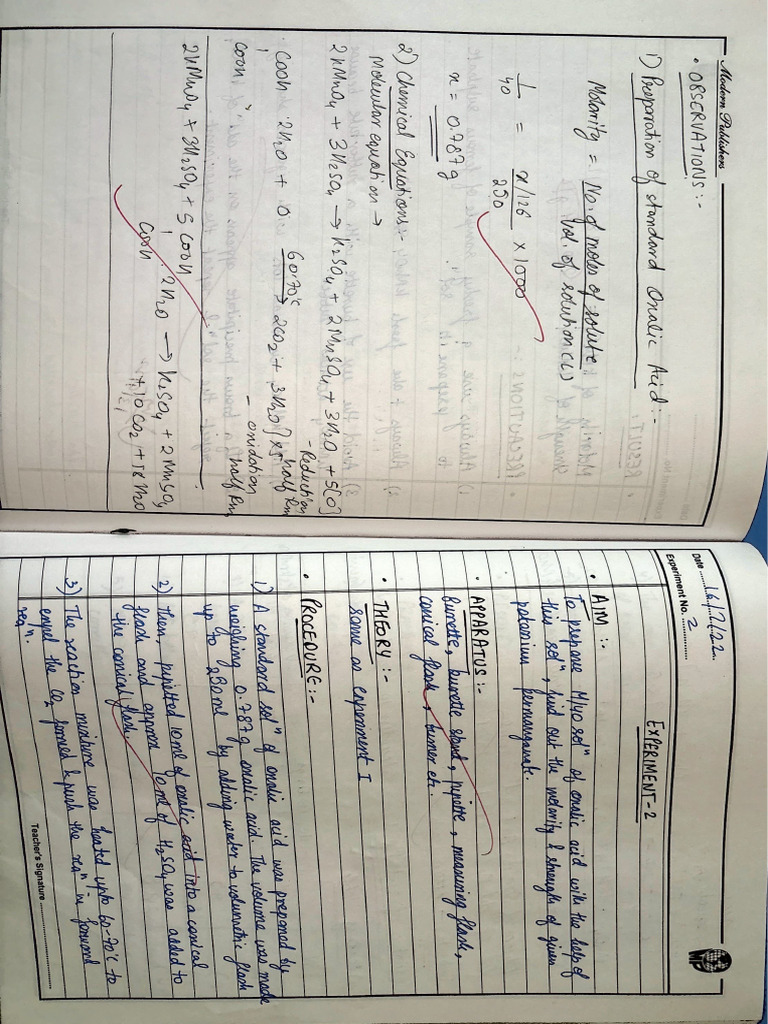 Modern Publishers
• OBSERVATIONS :-
1) Preparation of standard Oxalic Acid :-
Molarity = No. of moles of solute
Vol. of solution (L)
1/40 = x/126 / 250 × 1000
x = 0.787 g
2) Chemical Equations :-
Molecular equation →
2KMnO4 + 3H2SO4 → K2SO4 + 2MnSO4 + 3H2O + 5[O]
- Reduction half Rxn
COOH . 2H2O + O 60-70°C → 2CO2 + 3H2O] × 5
COOH
- oxidation half Rxn
2KMnO4 + 3H2SO4 + 5 COOH . 2H2O → K2SO4 + 2MnSO4
COOH + 10CO2 + 18H2O
Date 16/7/22
Experiment No. 2
EXPERIMENT-2
• AIM :-
To prepare M/40 solⁿ of oxalic acid with the help of
this solⁿ, find out the molarity & strength of given
potassium permanganate.
• APPARATUS :-
Burette, burette stand, pipette, measuring flask,
conical flask, burner etc.
• THEORY :-
Same as experiment I
• PROCEDURE :-
1) A standard solⁿ of oxalic acid was prepared by
weighing 0.787g oxalic acid. The volume was made
up to 250ml by adding water to volumetric flask
2) Then, pipetted 10ml of oxalic acid into a conical
flask and approx 10ml of H2SO4 was added to
the conical flask.
3) The reaction mixture was heated upto 60-70°C to
expel the CO2 formed & push the reqⁿ in forward
reqⁿ.
Teacher's Signature
MP